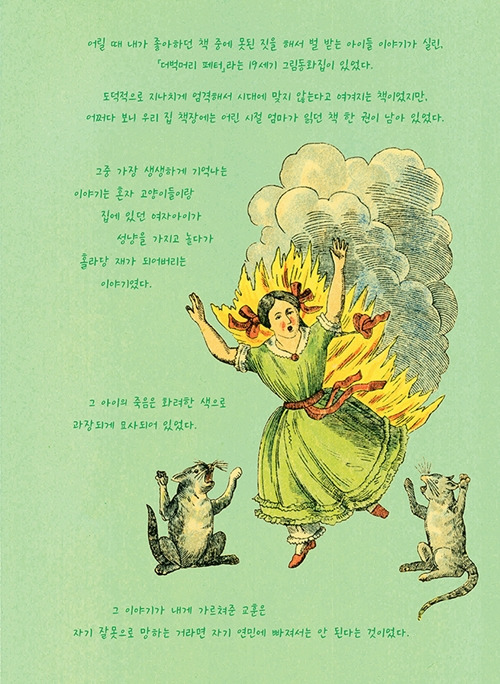 어릴 때 내가 좋아하던 책 중에 못된 짓을 해서 벌 받는 아이들 이야기가 실린,
「더벅머리 페터」라는 19세기 그림동화집이 있었다.
도덕적으로 지나치게 엄격해서 시대에 맞지 않는다고 여겨지는 책이었지만,
어쩌다 보니 우리 집 책장에는 어린 시절 엄마가 읽던 책 한 권이 남아 있었다.
그중 가장 생생하게 기억나는
이야기는 혼자 고양이들이랑
집에 있던 여자아이가
성냥을 가지고 놀다가
홀라당 재가 되어버리는
이야기였다.
그 아이의 죽음은 화려한 색으로
과장되게 묘사되어 있었다.
그 이야기가 내게 가르쳐준 교훈은
자기 잘못으로 망하는 거라면 자기 연민에 빠져서는 안 된다는 것이었다.